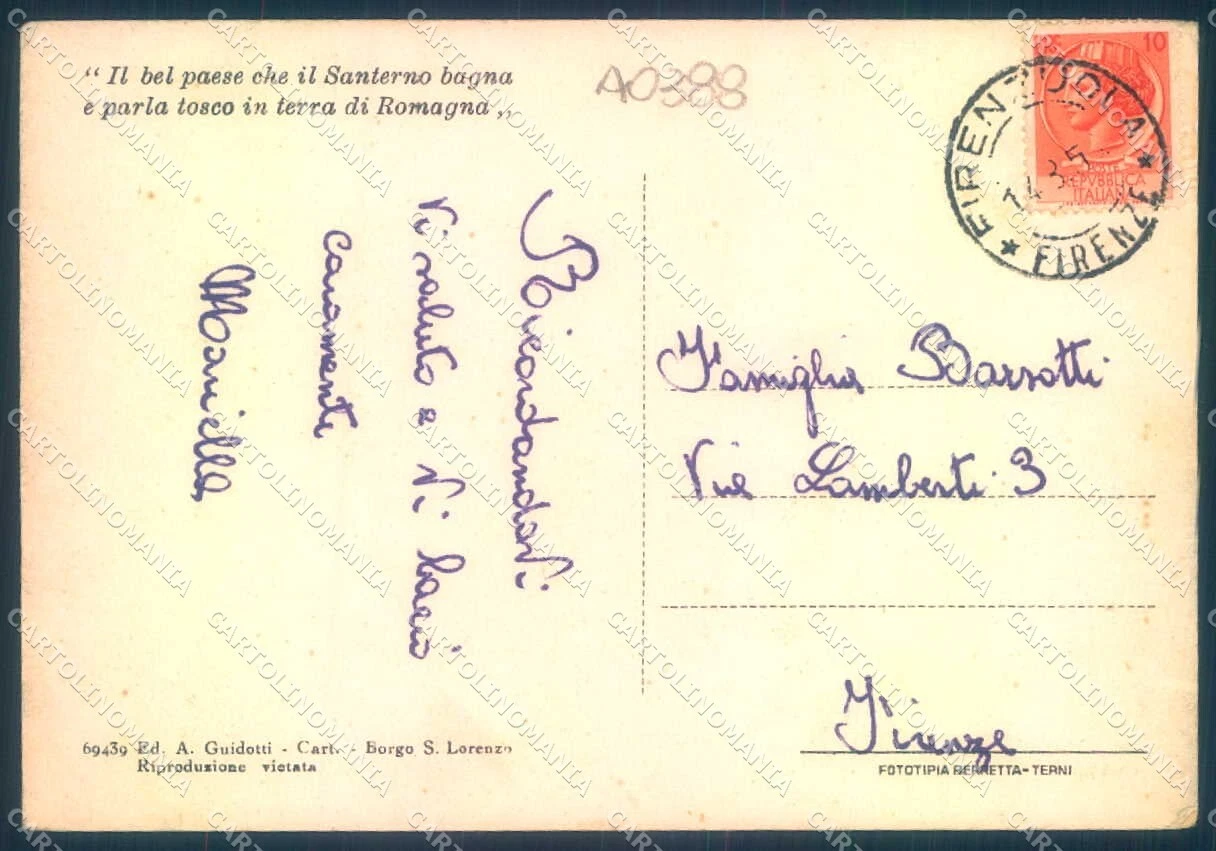 “ Il bel paese che il Santerno bagna
e parla tosco in terra di Romagna „
A0388
10
POSTE
REPVBBLICA
ITALIANA
FIRENZUOLA
★ FIRENZE ★
14.3.5
RicordandoVi
Vi saluto e Vi bacio
caramente
Mariella
Famiglia Bazzotti
Via Lamberti 3
Firenze
69439 Ed. A. Guidotti - Cart. - Borgo S. Lorenzo
Riproduzione vietata
FOTOTIPIA BERRETTA-TERNI
CARTOLINOMANIA